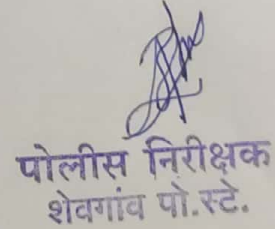 पोलीस निरीक्षक
शेवगांव पो.स्टे.